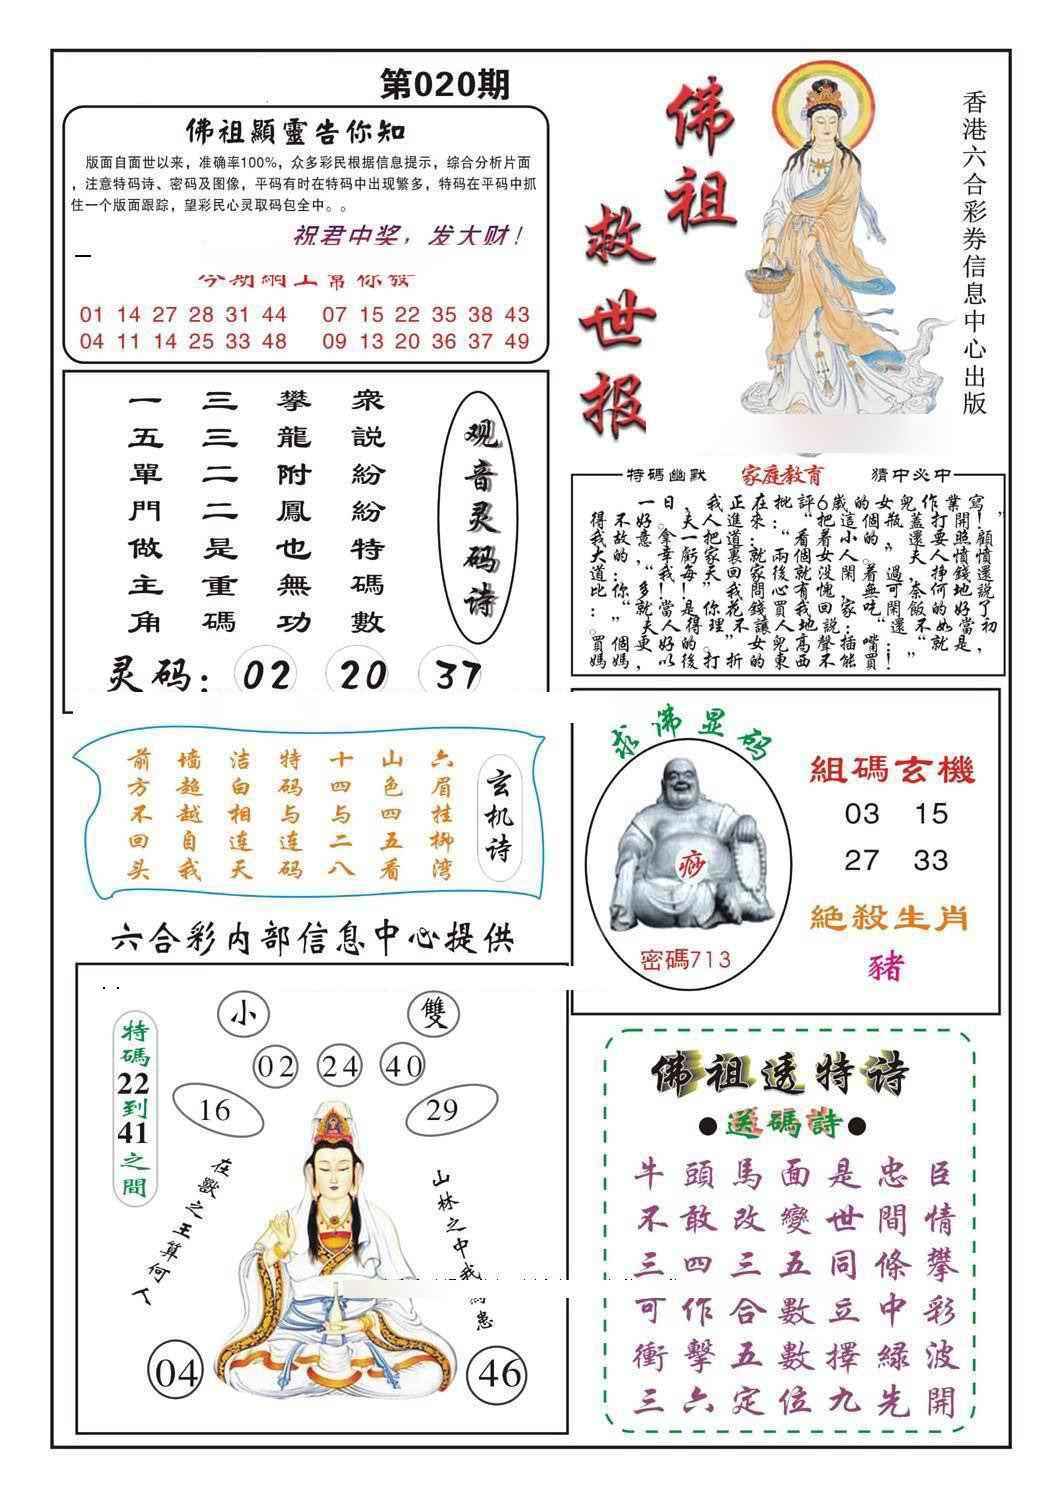 第020期
佛祖顯靈告你知
版面自面世以来，准确率100%，众多彩民根据信息提示，综合分析片面
，注意特码诗、密码及图像，平码有时在特码中出现繁多，特码在平码中抓
住一个版面跟踪，望彩民心灵取码包全中。。
祝君中奖，发大财！
今期網上幫你發
01 14 27 28 31 44 07 15 22 35 38 43
04 11 14 25 33 48 09 13 20 36 37 49
佛祖
救世报
香港六合彩券信息中心出版
观音灵码诗
衆說紛紛特碼數
攀龍附鳳也無功
三三二二是重碼
一五單門做主角
灵码：02 20 37
特碼幽默 家庭教育 猜中必中
一日，我正在批評6歲的女兒作業寫
得不好。夫人進來：“把這個瓶蓋打開！”
玄机诗
六眉挂柳湾
山色四五看
十四与二八
特码与连码
洁白相连天
墙超越自我
前方不回头
求佛显码
痧
密碼713
組碼玄機
03 15
27 33
絕殺生肖
豬
六合彩内部信息中心提供
特碼22到41之間
小 雙
02 24 40
16 29
在獸之王算何人
山林之中我為患
04 46
佛祖透特诗
●送碼詩●
牛頭馬面是忠臣
不敢改變世間情
三四三五同條攀
可作合數立中彩
衝擊五數擇綠波
三六定位九先開